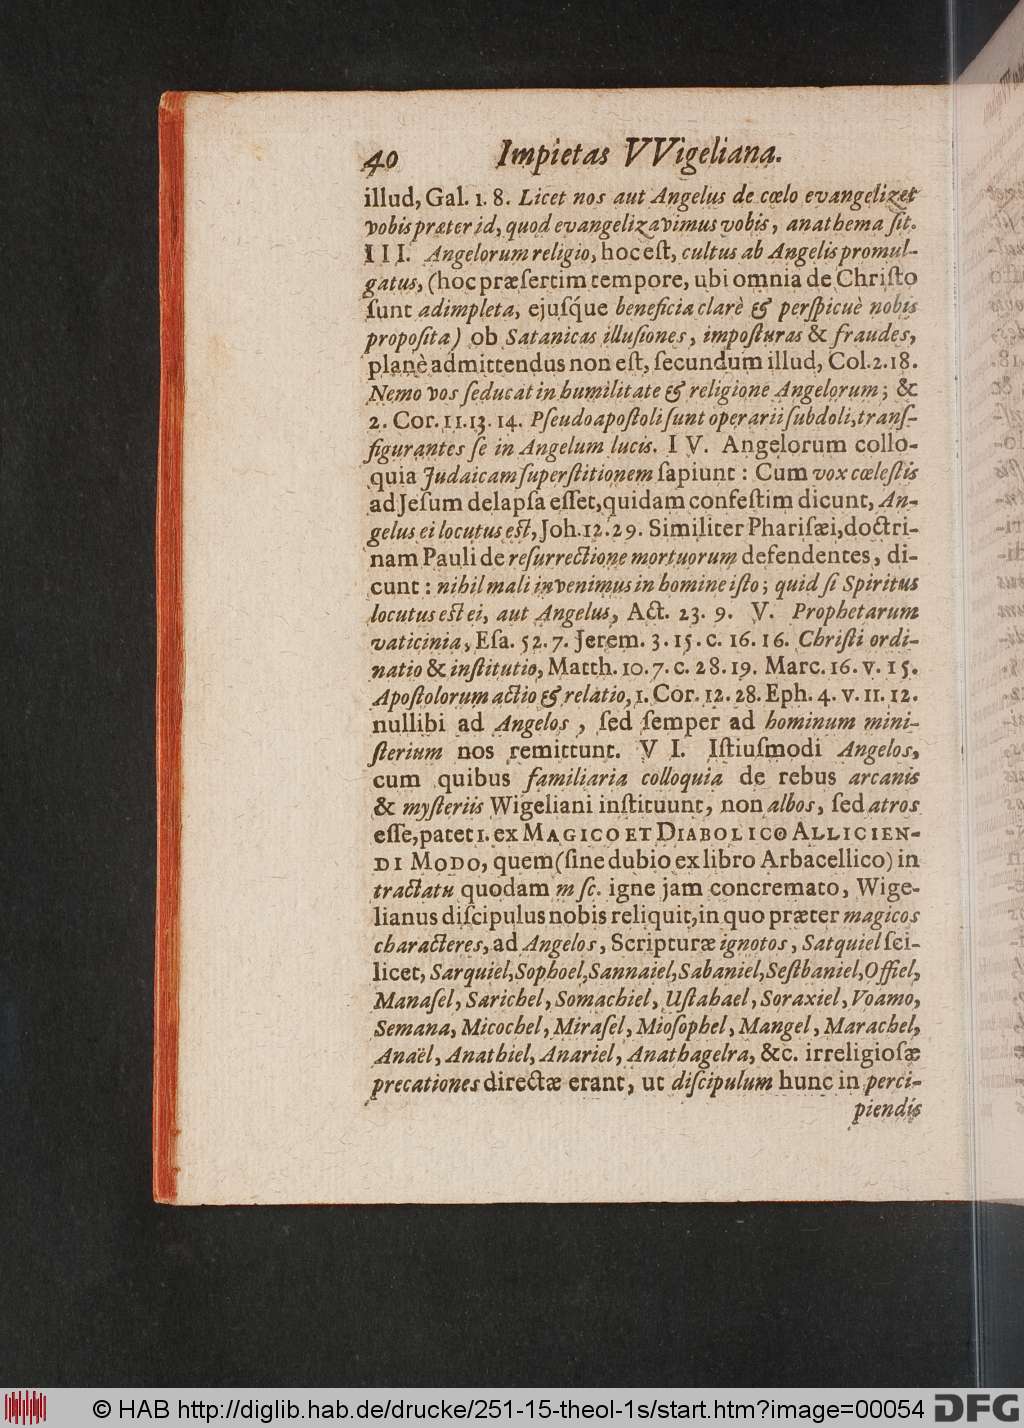 40 Impietas VVigeliana.
illud, Gal. 1. 8. Licet nos aut Angelus de cœlo evangelizet
vobis præter id, quod evangelizavimus vobis, anathema ſit.
III. Angelorum religio, hoc eſt, cultus ab Angelis promul-
gatus, (hoc præſertim tempore, ubi omnia de Chriſto
ſunt adimpleta, ejuſq́ue beneficia clarè & perſpicuè nobis
propoſita) ob Satanicas illuſiones, impoſturas & fraudes,
planè admittendus non eſt, ſecundum illud, Col. 2. 18.
Nemo vos ſeducat in humilitate & religione Angelorum; &
2. Cor. 11. 13. 14. Pſeudoapoſtoli ſunt operarii ſubdoli, transſ-
figurantes ſe in Angelum lucis. IV. Angelorum collo-
quia Judaicam ſuperſtitionem ſapiunt: Cum vox cœleſtis
ad Jeſum delapſa eſſet, quidam confeſtim dicunt, An-
gelus ei locutus eſt, Joh. 12. 29. Similiter Phariſæi, doctri-
nam Pauli de reſurrectione mortuorum defendentes, di-
cunt: nihil mali invenimus in homine iſto; quid ſi Spiritus
locutus eſt ei, aut Angelus, Act. 23. 9. V. Prophetarum
vaticinia, Eſa. 52. 7. Jerem. 3. 15. c. 16. 16. Chriſti ordi-
natio & inſtitutio, Matth. 10. 7. c. 28. 19. Marc. 16. v. 15.
Apoſtolorum actio & relatio, 1. Cor. 12. 28. Eph. 4. v. 11. 12.
nullibi ad Angelos, ſed ſemper ad hominum mini-
ſterium nos remittunt. VI. Iſtiuſmodi Angelos,
cum quibus familiaria colloquia de rebus arcanis
& myſteriis Wigeliani inſtituunt, non albos, ſed atros
eſſe, patet 1. ex MAGICO ET DIABOLICO ALLICIEN-
DI MODO, quem (ſine dubio ex libro Arbacellico) in
tractatu quodam mſc. igne jam concremato, Wige-
lianus diſcipulus nobis reliquit, in quo præter magicos
characteres, ad Angelos, Scripturæ ignotos, Satquiel ſci-
licet, Sarquiel, Sophoel, Sannaiel, Sabaniel, Seſtbaniel, Offiel,
Manaſel, Sarichel, Somachiel, Uſtahael, Soraxiel, Voamo,
Semana, Micochel, Miraſel, Mioſophel, Mangel, Marachel,
Anaël, Anathiel, Anariel, Anathagelra, &c. irreligioſæ
precationes directæ erant, ut diſcipulum hunc in perci-
piendis
© HAB http://diglib.hab.de/drucke/251-15-theol-1s/start.htm?image=00054
DFG